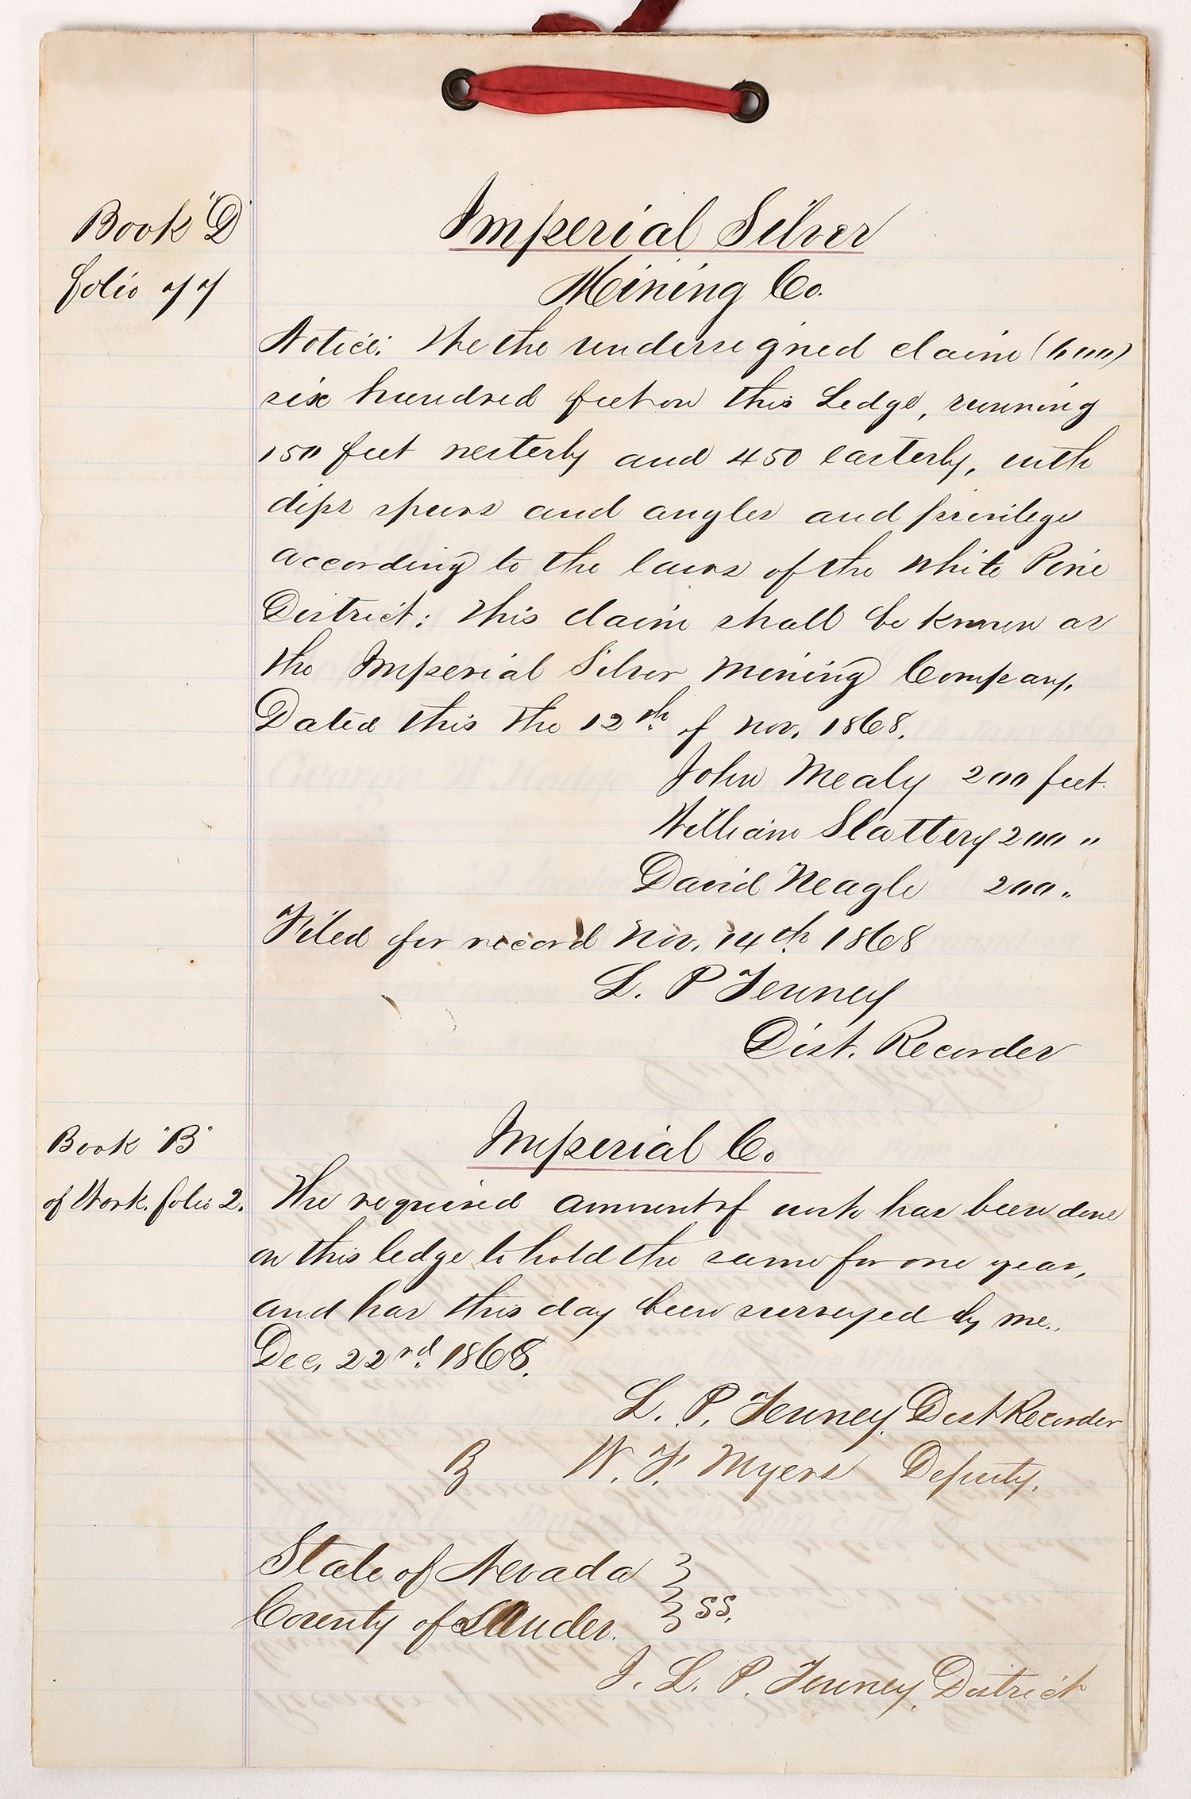 Book "D"
folio 77
Imperial Silver
Mining Co.
Notice: We the undersigned claim (600)
six hundred feet on this Ledge, running
150 feet westerly and 450 easterly, with
dips spurs and angles and privileges
according to the laws of the White Pine
District: This claim shall be known as
the Imperial Silver Mining Company.
Dated this the 12th of Nov. 1868.
John Mealy 200 feet.
William Slattery 200 "
David Neagle 200 "
Filed for record Nov. 14th 1868
L. P. Tenney
Dist. Recorder
Book "B"
of Work. folio 2.
Imperial Co.
The required amount of work has been done
on this ledge to hold the same for one year,
and has this day been surveyed by me.
Dec. 22nd. 1868.
L. P. Tenney, Dist Recorder
By W. F. Myers Deputy.
State of Nevada }
County of Lander. } SS.
I. L. P. Tenney, District